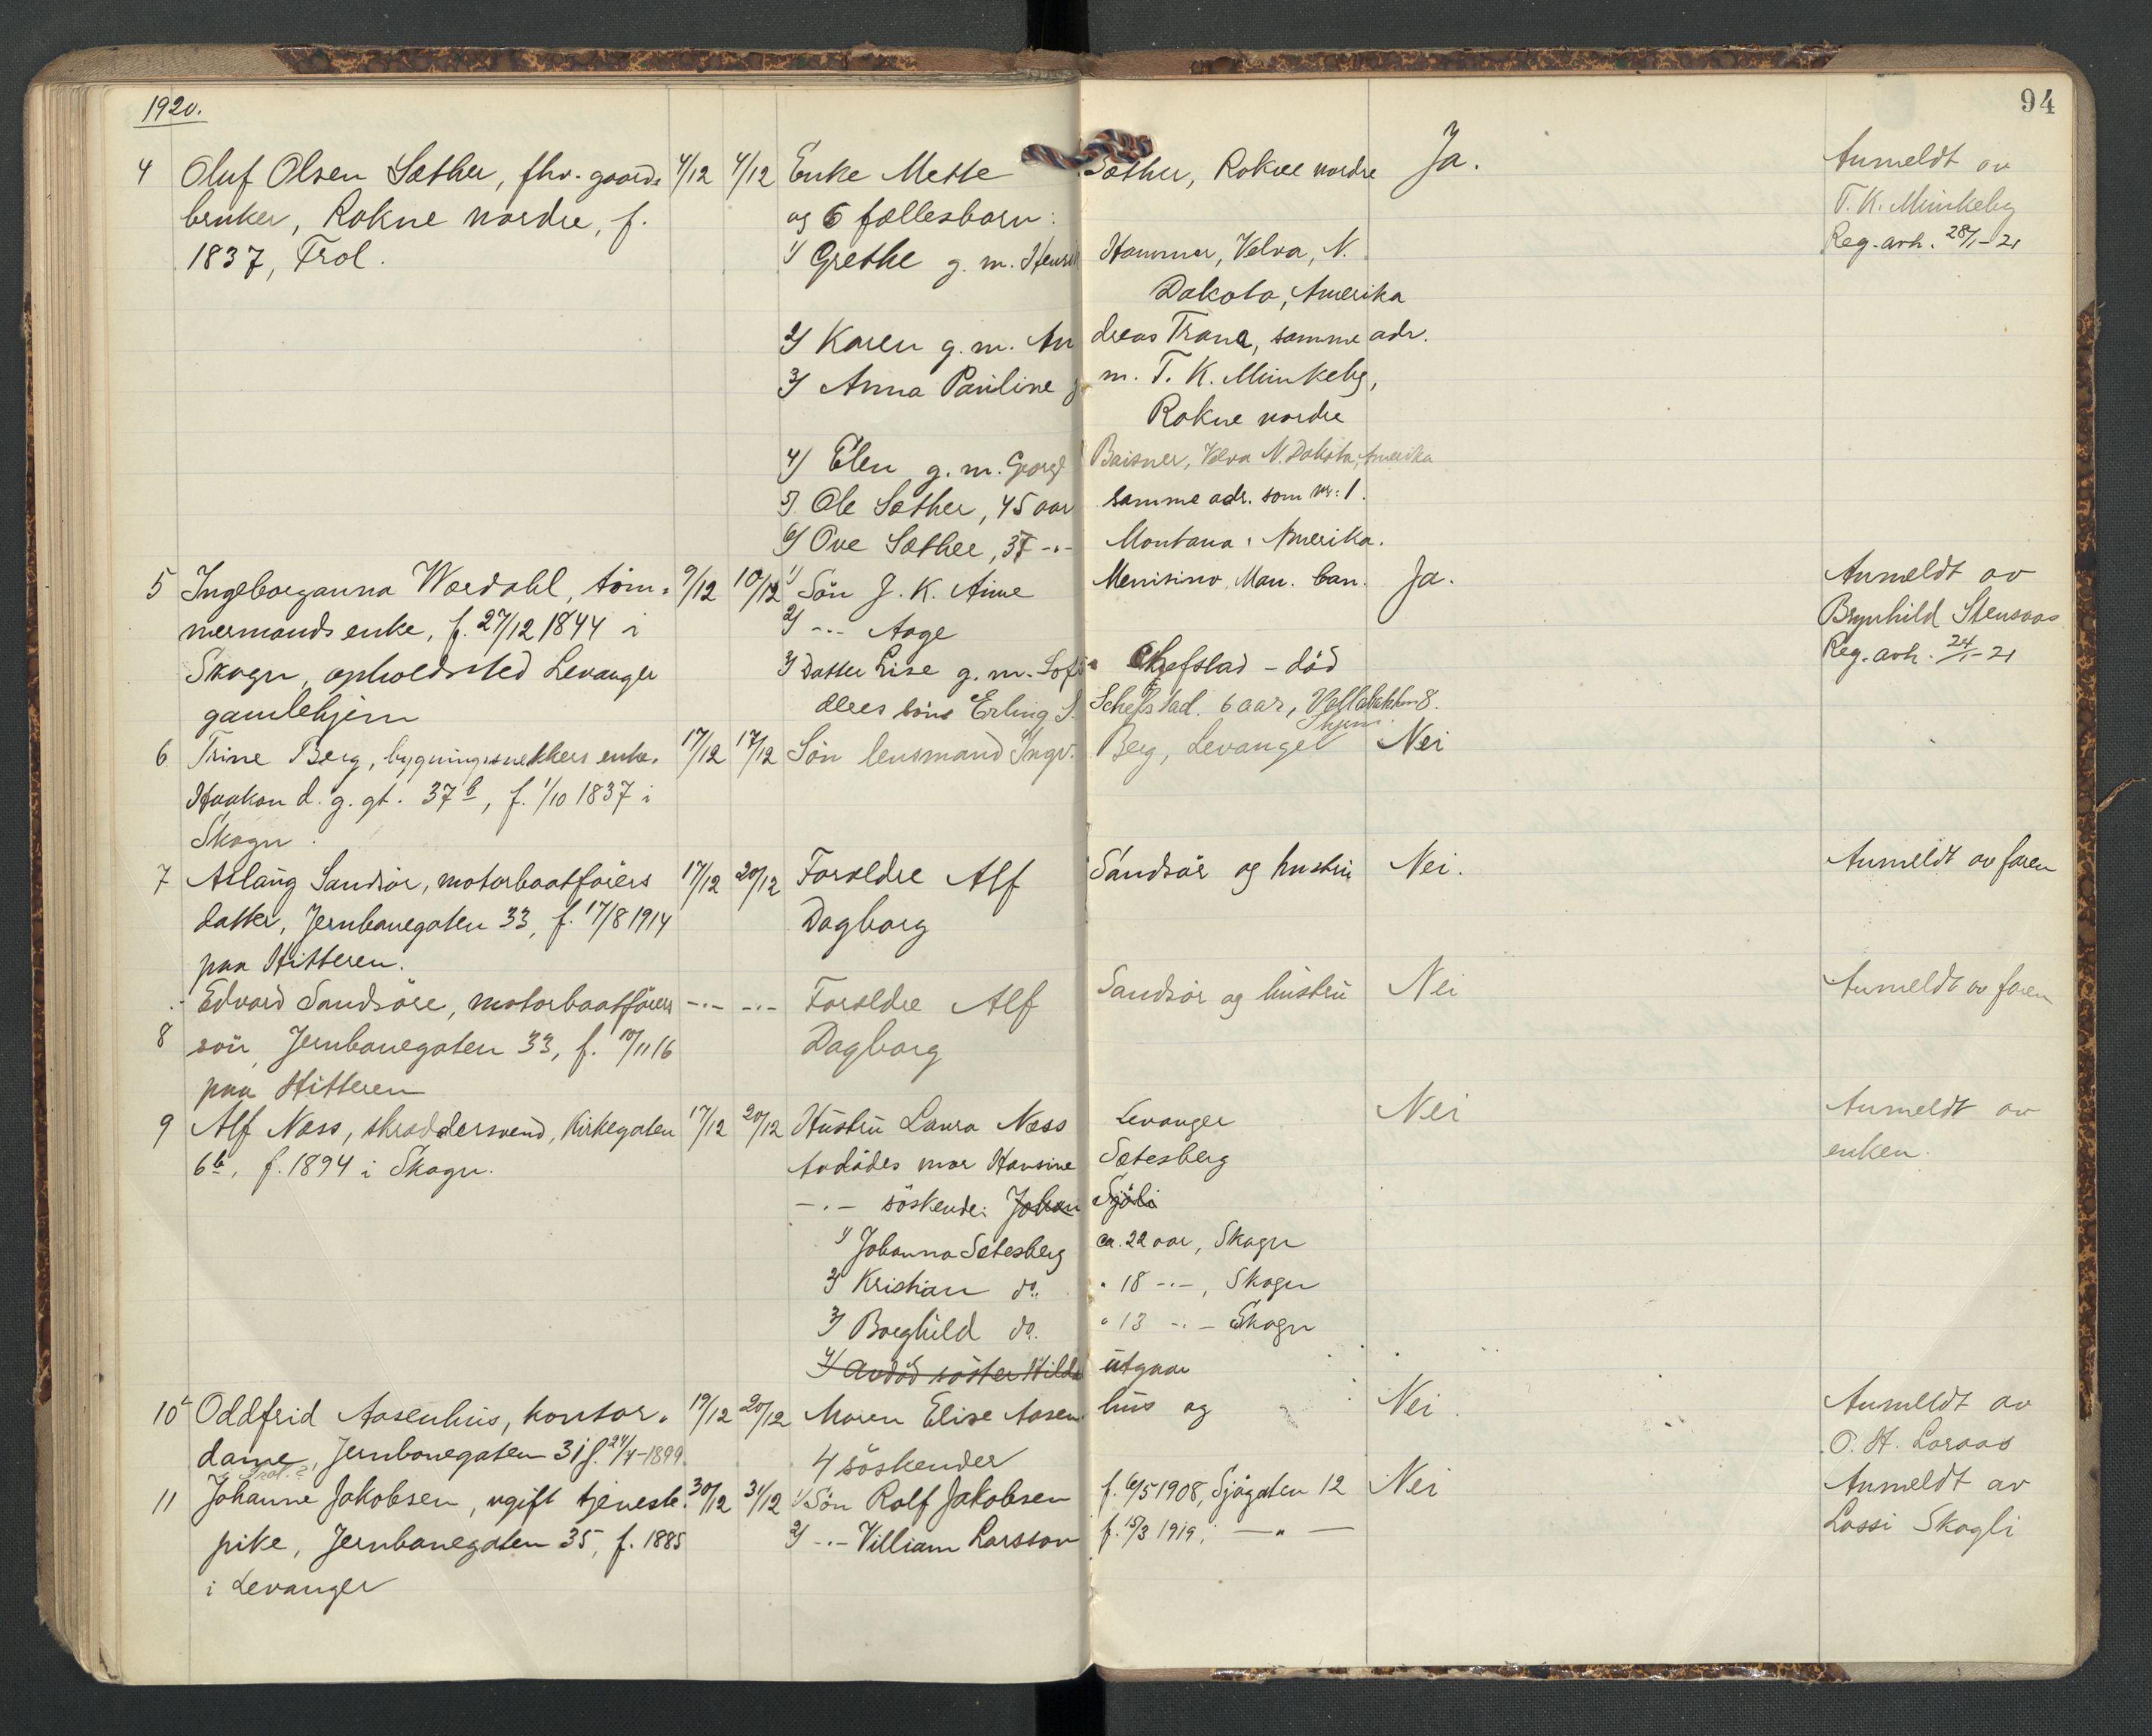 1920.
94
4 Oluf Olsen Sæther, fhv. gaards 4/12 4/12 Enke Mette Sæther, Rokne nordre Ja. Anmeldt av
bruker, Rokne nordre, f. og 6 fællesbarn: T. K. Munkeby
1837, Frol. 1/ Grethe g. m. Henrik Hammer, Velva, N. Reg. avh. 28/1-21
Dakota, Amerika
2/ Karen g. m. An dreas Trana, samme adr.
3/ Anna Pauline g. m. T. K. Munkeby,
Rokne nordre
4/ Elen g. m. Georg Baisner, Velva N. Dakota, Amerika
5/ Ole Sæther, 45 aar samme adr. som nr: 1.
6/ Ove Sæther, 37 -"- Montana, Amerika.
5 Ingeborganna Wordahl, töm- 9/12 10/12 1/ Sön J. K. Aune Menisino, Man. Can. Ja. Anmeldt av
mermands enke, f. 27/12 1844 i 2/ -"- Aage Brynhild Stensaas
Skogn, opholdsted Levanger 3/ Datter Lise g. m. Chefstad - död Reg. avh. 24/1-21
gamlehjem deres sön Erling S. Schefstad. 6 aar, 8.
6 Trine Berg, bygningssnekkers enke, 17/12 17/12 Sön lensmand Ingv. Berg, Levanger Nei
Haakon d. g. gt. 37b, f. 1/10 1837 i
Skogn.
7 Aslaug Sandsör, motorbaatförers 17/12 20/12 Foreldre Alf Sandsör og hustru Nei. Anmeldt av faren
datter, Jernbanegaten 33, f. 17/8 1914 Dagborg
paa Hitteren.
-"- Edvard Sandsöre, motorbaatförers -"- -"- Foreldre Alf Sandsör og hustru Nei Anmeldt av faren
8 sön, Jernbanegaten 33, f. 10/11 16 Dagborg
paa Hitteren
9 Alf Næss, skræddersvend, Kirkegaten 17/12 20/12 Hustru Laura Næss Levanger Nei Anmeldt av
6b, f. 1894 i Skogn. Avdödes mor Hansine Sætesberg enken.
-"- söskende: Johan Sjöli
1/ Johanna Sætesberg ca. 22 aar, Skogn
2/ Kristian do. " 18 -"-, Skogn
3/ Borghild do. " 13 -"- Skogn
4/ Avdöd söster Hilda utgaar
10 Oddfrid Aasenhus, kontor- 19/12 20/12 Maren Elise Aasen- hus og Nei. Anmeldt av
dame, Jernbanegaten 31 f. 24/4-1899 4 söskender O. H. Loraas
11 Johanne Jakobsen, ugift tjeneste- 30/12 31/12 1/ Sön Rolf Jakobsen f. 6/5 1908, Sjögaten 12 Nei Anmeldt av
pike, Jernbanegaten 35, f. 1885 2/ -"- Villiam Larsson f. 15/3 1919, — " — Lossi Skogli
i Levanger